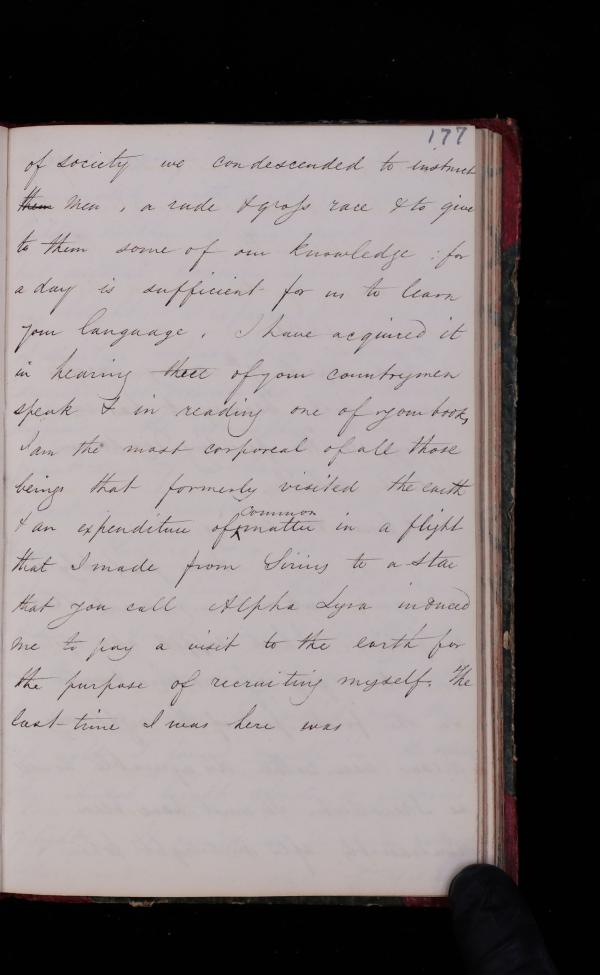 177
of society we condescended to instruct
them Men, a rude & gross race & to give
to them some of our knowledge : for
a day is sufficient for us to learn
your language. I have acquired it
in hearing of your countrymen
speak & in reading one of your books,
I am the most corporeal of all those
beings that formerly visited the earth
& an expenditure of common matter in a flight
that I made from Sirius to a star
that you call Alpha Lyra induced
me to pay a visit to the earth for
the purpose of recruiting myself. The
last time I was here was